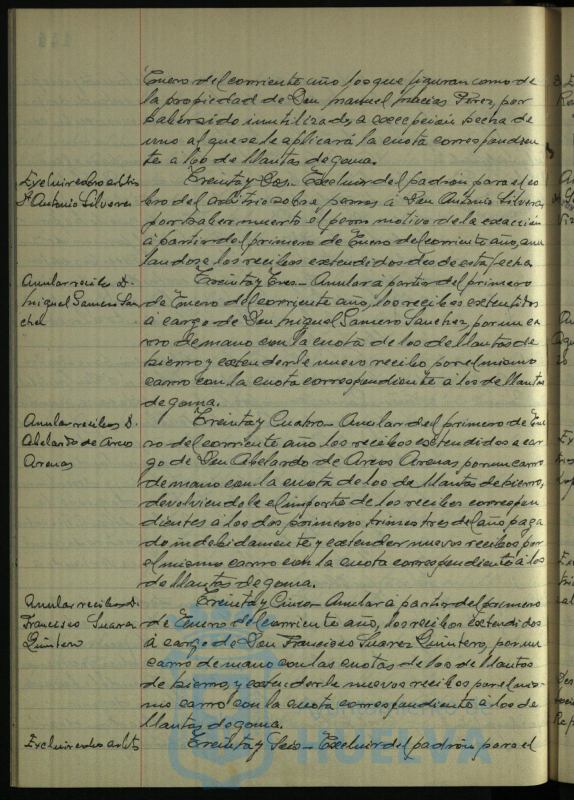 Enero del corriente año los que figuran como de
la propiedad de Don Manuel Macias Perez, por
haber sido inutilizados, a excepción hecha de
uno al que se le aplicará la cuota correspondien
te a los de llantas de goma.
Excluir cobro arbitrio
D. Antonio Silvera
Treinta y Dos.- Excluir del padrón para el co
bro del arbitrio sobre perros á Don Antonio Silvera,
por haber muerto el perro motivo de la exacción
á partir del primero de Enero del corriente año, anu
landose los recibos extendidos desde esta fecha.
Anular recibos D.
Miguel Samero San
chez
Treinta y Tres.- Anular á partir del primero
de Enero del corriente año, los recibos extendidos
á cargo de Don Miguel Samero Sanchez, por un ca
rro de mano con la cuota de los de llantas de
hierro y extenderle nuevo recibo por el mismo
carro con la cuota correspondiente á los de llantas
de goma.
Anular recibos D.
Abelardo de Arcos
Arenas
Treinta y Cuatro.- Anular del primero de Ene
ro del corriente año los recibos extendidos a car
go de Don Abelardo de Arcos Arenas, por un carro
de mano con la cuota de los de llantas de hierro,
devolviendole el importe de los recibos correspon
dientes a los dos primeros trimestres del año paga
do indebidamente y extender nuevos recibos por
el mismo carro con la cuota correspondiente á los
de llantas de goma.
Anular recibos D.
Francisco Suarez
Quintero
Treinta y Cinco.- Anular á partir del primero
de Enero del corriente año, los recibos extendidos
á cargo de Don Francisco Suarez Quintero, por un
carro de mano con las cuotas de los de llantas
de hierro, y extenderle nuevos recibos por el mis
mo carro con la cuota correspondiente á los de
llantas de goma.
Excluir cobro arbto
Treinta y Seis.- Excluir del padrón para el
HUELVA